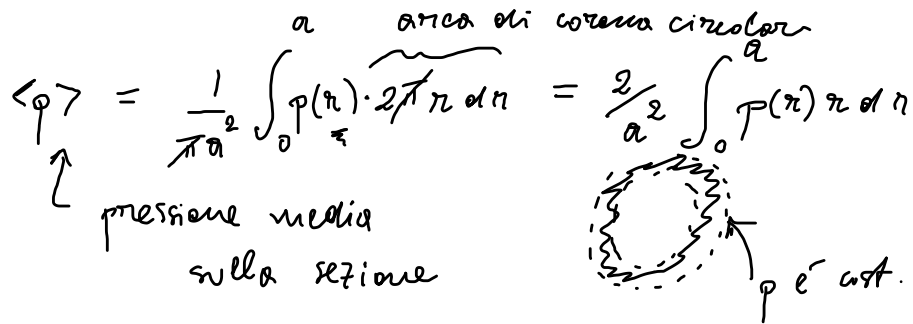 area di corona circolar
<p> = 1/πa² ∫₀ᵃ p(r) · 2π r dr = 2/a² ∫₀ᵃ p(r) r dr
pressione media
sulla sezione
p é cost.